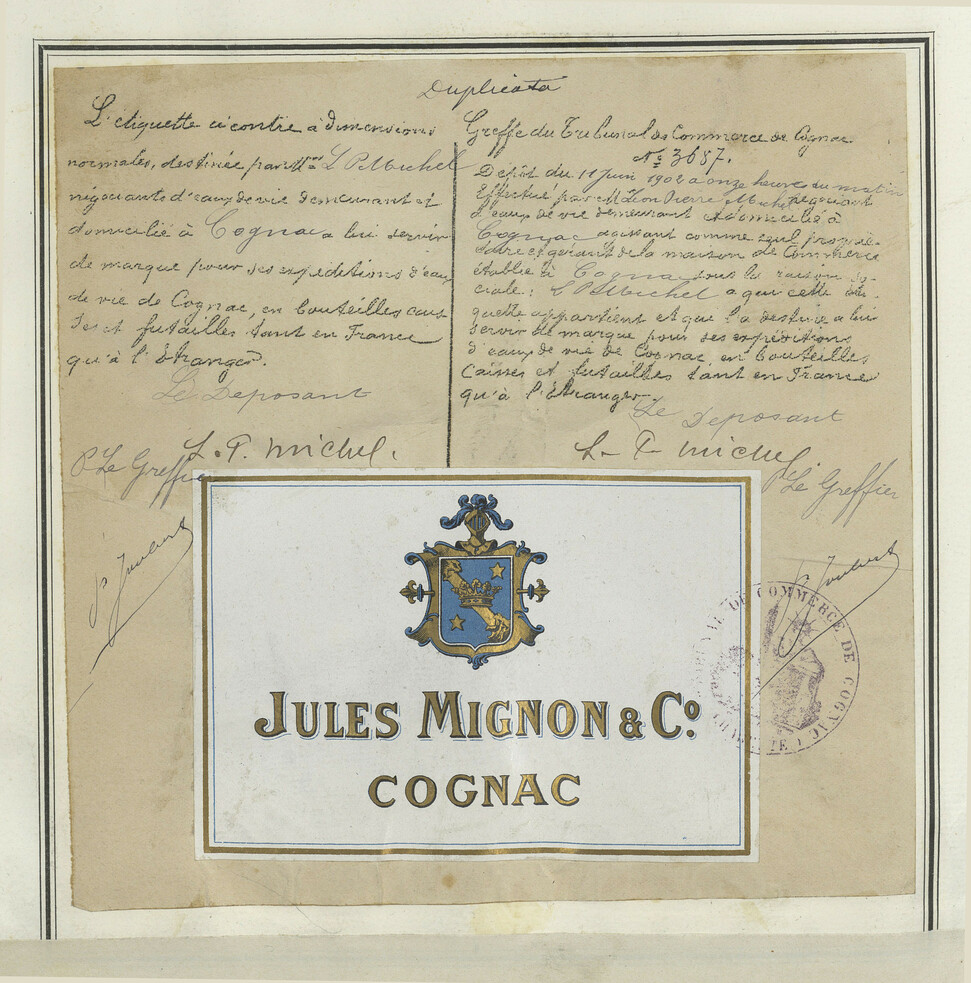 Duplicata
L'étiquette ci contre a dimensions
normales, destinée par L P Michel
négociante d'eaux de vie demeurant et
domicilié à Cognac a lui servir
de marque pour ses expéditions d'eau
de vie de Cognac, en bouteilles cais
ses et futailles tant en France
qu'à l'étranger.
Le Deposant
L. P. Michel.
P. Le Greffier
Greffe du Tribunal de Commerce de Cognac
No 3687.
Dépot du 11 Juin 1902 a onze heures du matin
Effectué par M. Léon Pierre Michel négociant
d'eaux de vie demeurant et domicilié à
Cognac agissant comme seul proprié-
taire et gérant de la maison de Commerce
établie à Cognac sous la raison so-
ciale: L P Michel a qui cette éti-
quette appartient et que la destine a lui
servir de marque pour ses expéditions
d'eaux de vie de Cognac en bouteilles
Caisses et futailles tant en France
qu'à l'étranger.
Le Deposant
L. P. Michel
P. Le Greffier
JULES MIGNON & Co.
COGNAC
TRIBUNAL DE COMMERCE DE COGNAC